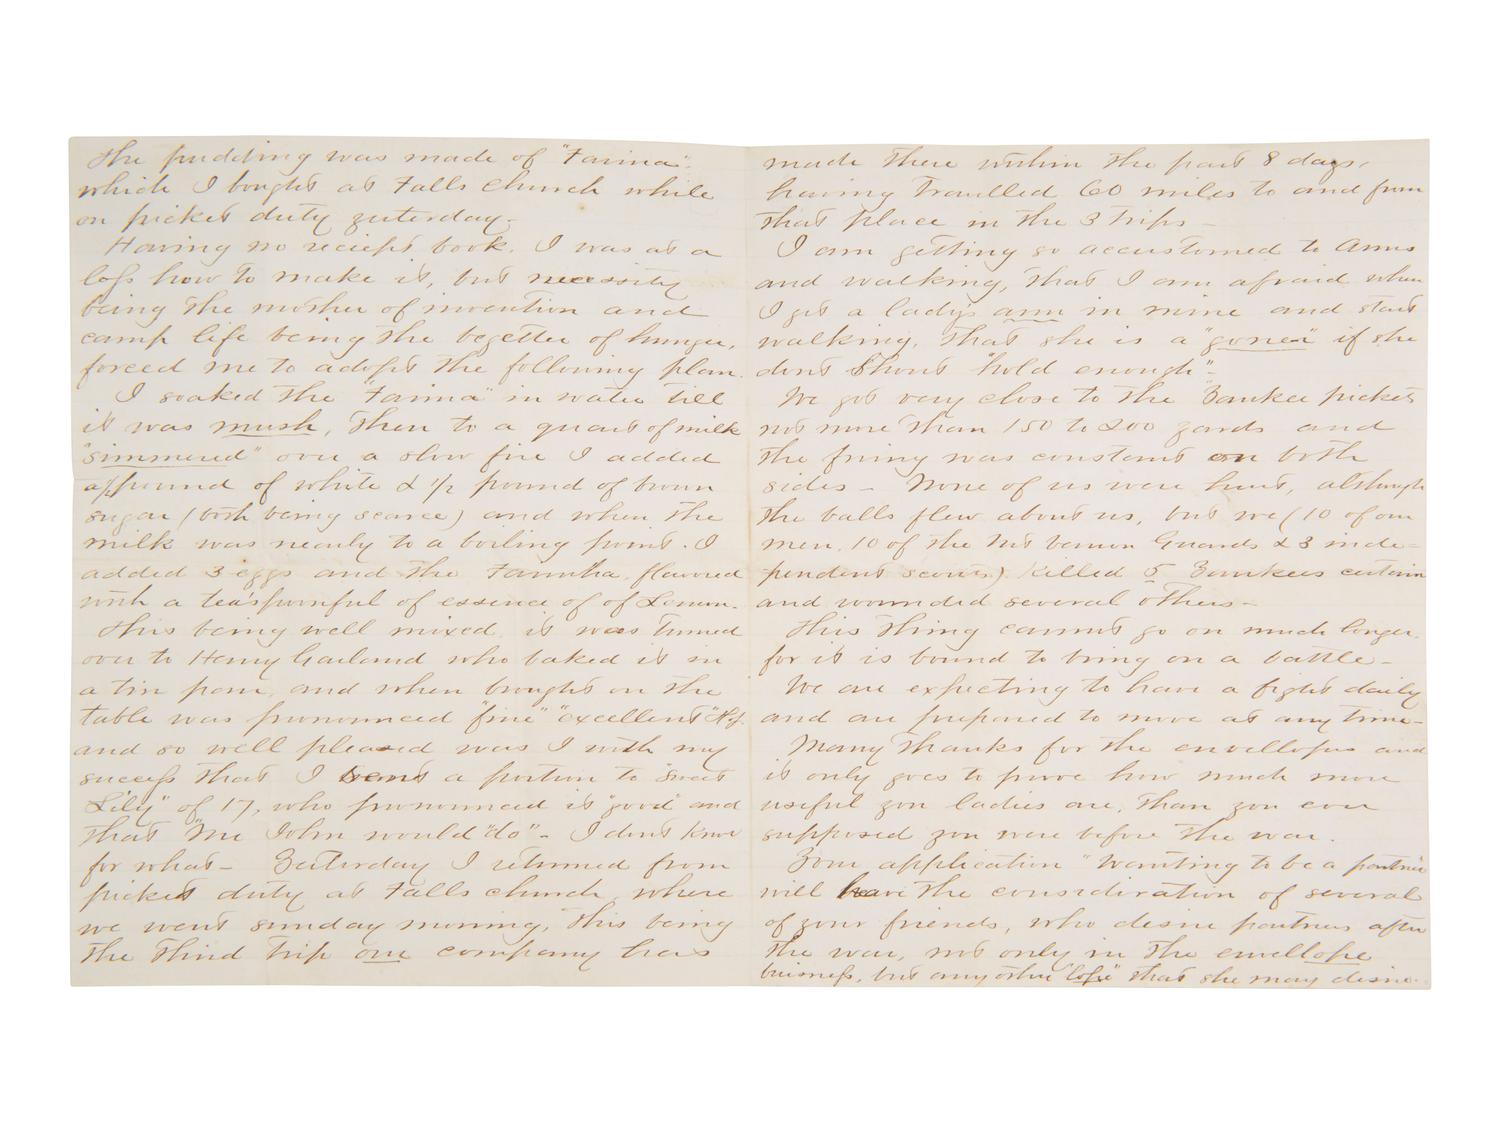 The pudding was made of "Farina".
which I bought at Falls Church while
on picket duty yesterday.
Having no reciept book. I was at a
loss how to make it, but necessity
being the mother of invention and
camp life being the begetter of hunger,
forced me to adopt the following plan.
I soaked the "Farina" in water till
it was mush, then to a quart of milk
"simmered" over a slow fire I added
a pound of white & 1/2 pound of brown
sugar (both being scarce) and when the
milk was nearly to a boiling point. I
added 3 eggs and the Farinha, flavored
with a teaspoonful of essence of of Lemon.
This being well mixed, it was turned
over to Henry Garland who baked it in
a tin pan, and when brought on the
table was pronounced "fine" "excellent"
and so well pleased was I with my
success that I sent a portion to "sweet
Lily" of 17, who pronounced it "good" and
that "Mr John would "do" - I dont know
for what - Yesterday I returned from
picket duty at Falls church, where
we went sunday morning, this being
the third trip our company has
made there within the past 8 days,
having travelled 60 miles to and from
that place in the 3 trips -
I am getting so accustomed to Arms
and walking, that I am afraid when
I get a ladys arm in mine and start
walking, that she is a "goner" if she
dont shout "hold enough" -
We got very close to the Yankee pickets
not more than 150 to 200 yards and
the firing was constant on both
sides - None of us were hurt, although
the balls flew about us, but we (10 of our
men, 10 of the Mt Vernon Guards & 3 inde=
pendent scouts) killed 5 Yankees certain
and wounded several others -
This thing cannot go on much longer,
for it is bound to bring on a battle -
We are expecting to have a fight daily
and are prepared to move at any time -
Many thanks for the envellopes and
it only goes to prove how much more
useful you ladies are, than you ever
supposed you were before the war.
Your application "wanting to be a partner
will have the consideration of several
of your friends, who desire partners after
the war, not only in the envellope
buisness, but any other "life" that she may desire.